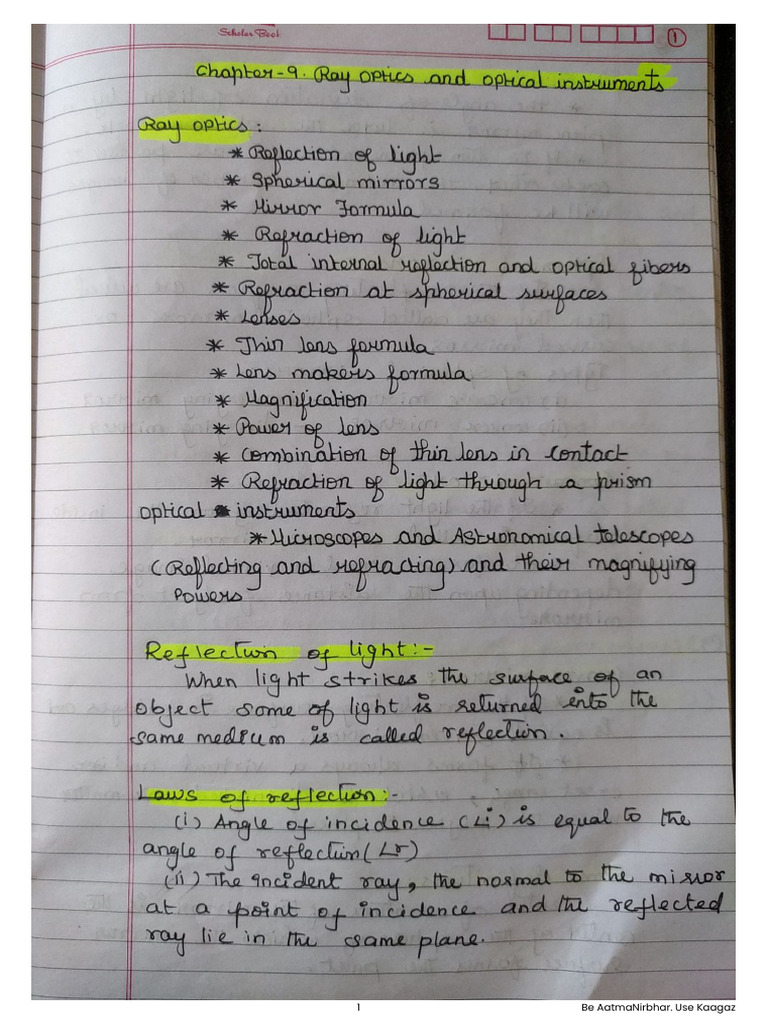 Scholar Book
1
Chapter-9. Ray optics and optical instruments
Ray optics:
* Reflection of light
* Spherical mirrors
* Mirror Formula
* Refraction of light
* Total internal reflection and optical fibers
* Refraction at spherical surfaces
* Lenses
* Thin lens formula
* Lens makers formula
* Magnification
* Power of lens
* Combination of thin lens in contact
* Refraction of light through a prism
optical instruments
* Microscopes and Astronomical telescopes
(Reflecting and refracting) and their magnifying
Powers
Reflection of light:-
When light strikes the surface of an
object some of light is returned into the
same medium is called reflection.
Laws of reflection:-
(i) Angle of incidence (∠i) is equal to the
angle of reflection (∠r)
(ii) The incident ray, the normal to the mirror
at a point of incidence and the reflected
ray lie in the same plane.
1
Be AatmaNirbhar. Use Kaagaz